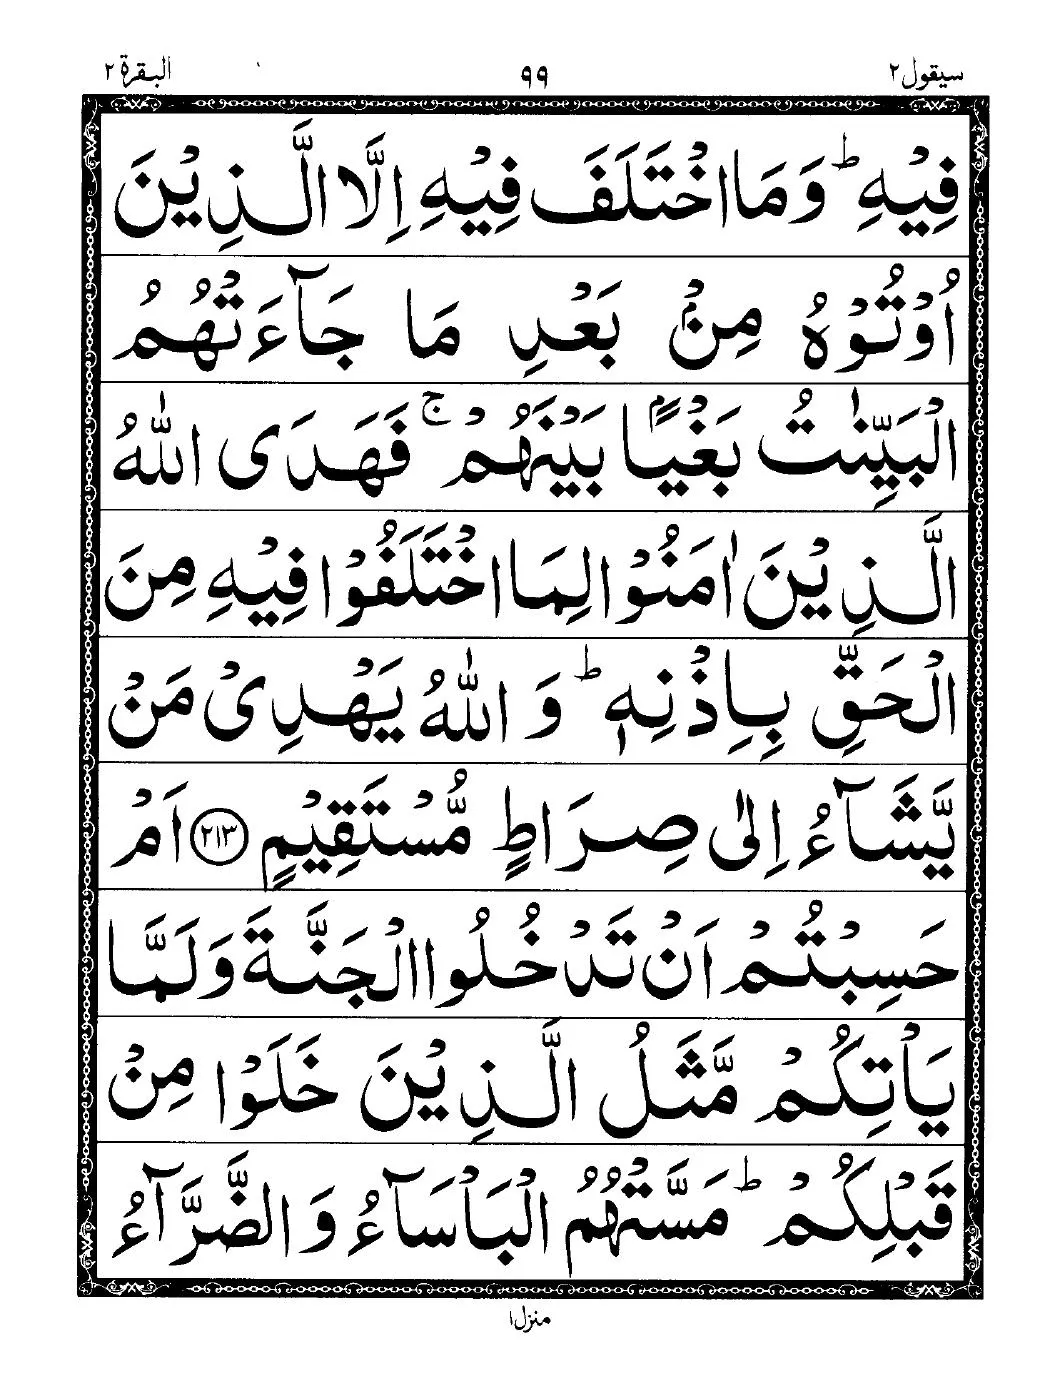 سيقول ٢ ٩٩ البقرة ٢
فِيْهِ ؕ وَمَا اخْتَلَفَ فِيْهِ اِلَّا الَّذِيْنَ
اُوْتُوْهُ مِنْۢ بَعْدِ مَا جَآءَتْهُمُ
الْبَيِّنٰتُ بَغْيًۢا بَيْنَهُمْ ۚ فَهَدَى اللّٰهُ
الَّذِيْنَ اٰمَنُوْا لِمَا اخْتَلَفُوْا فِيْهِ مِنَ
الْحَقِّ بِاِذْنِهٖ ؕ وَ اللّٰهُ يَهْدِيْ مَنْ
يَّشَآءُ اِلٰى صِرَاطٍ مُّسْتَقِيْمٍ ﴿٢١٣﴾ اَمْ
حَسِبْتُمْ اَنْ تَدْخُلُوا الْجَنَّةَ وَلَمَّا
يَاْتِكُمْ مَّثَلُ الَّذِيْنَ خَلَوْا مِنْ
قَبْلِكُمْ ؕ مَسَّتْهُمُ الْبَاْسَآءُ وَ الضَّرَّآءُ
منزل ١